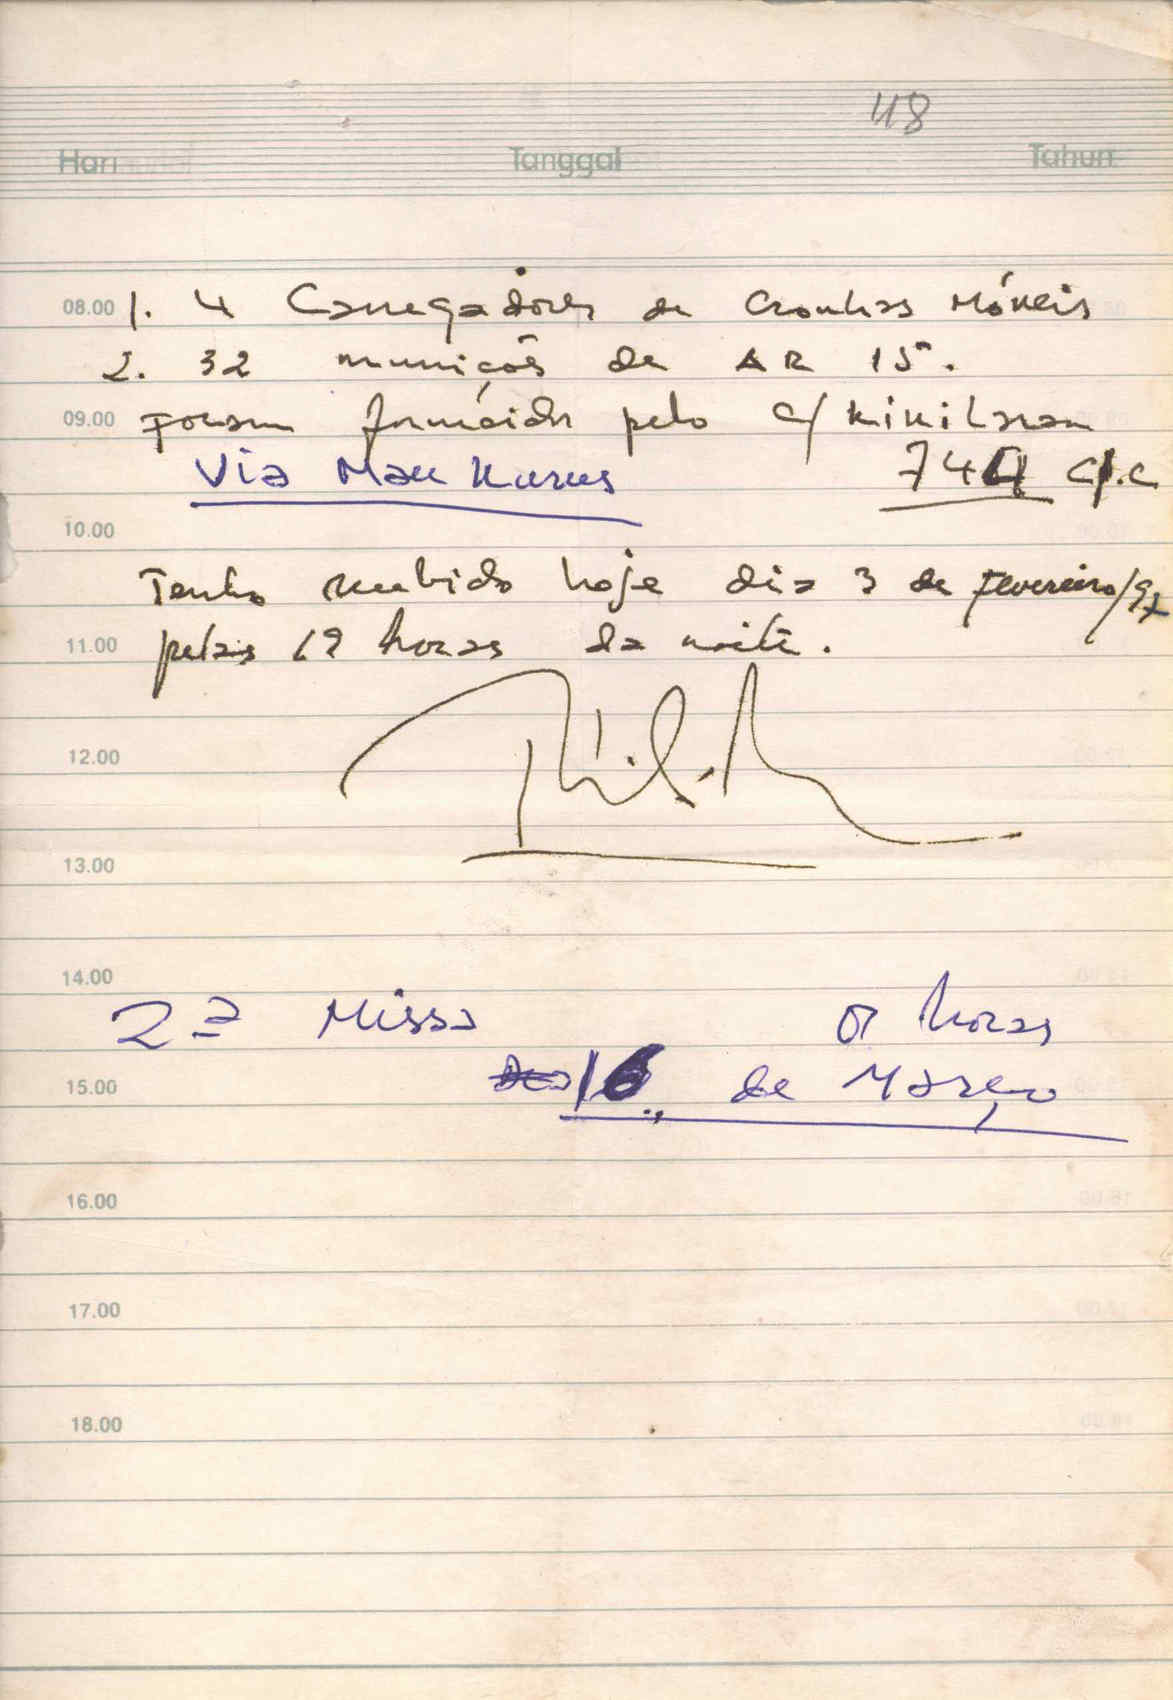 48
Hari Tanggal Tahun
08.00 1. 4 Carregadores de Cronhas Móveis
2. 32 municõs de AR 15.
09.00 Foram fornécido pelo c/ Kikilaran
Via Mau Kurus 744 C/.C
10.00
Tenho recebido hoje dia 3 de Fevereiro/97
11.00 pelas 19 horas da noite.
12.00
13.00
14.00
2ª Missa 07 horas
15.00 16 de Março
16.00
17.00
18.00